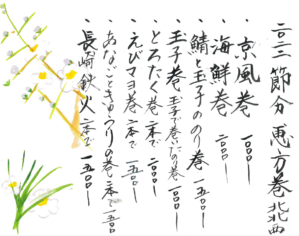 二〇二一 節分 恵方巻 北西
・京風巻 一〇〇〇ー
・海鮮巻 二〇〇〇ー
・鯖と玉子ののり巻 一五〇〇ー
・玉子巻 玉子で巻いたのり巻 一〇〇〇ー
・とろたく巻 二本で 二〇〇〇ー
・えびマヨ巻 二本で 一五〇〇ー
・あなごときゅうりの巻 二本で 一五〇〇
・長崎鉄火 二本で 一五〇〇ー